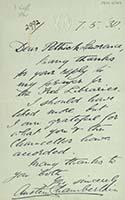 2992
7.5.30
Dear Pethick-Lawrence,
Many thanks
for your reply to
my
to the
I should have
liked more but
I am grateful for
what you & the
Chancellor have
accorded.
Many thanks
to you both
Yrs sincerely
Austen Chamberlain